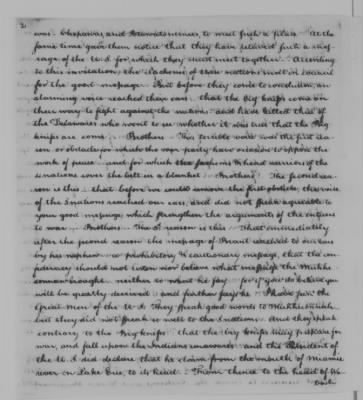 2
was. Chepaway, and Potawatommies, to meet such a place. At the
same time gave them notice that they have received such a mes-
sage of the U. S. for which they must meet together. According
to this invitation, the Sachems of those nations met in council
for the good message. But before they come to conclusion, an
alarming voice reached their ears. that the big knifes on
their way to fight against the nations and have killed that of
the Delawares who went to see whether it was true that the Big
knifes are come. Brothers. This terrible voice was the first rea-
son, or obstacle, for which the war party have occasion to oppose the
work of peace, and for which the head warriors of the
5 nations cover the belt in a blanket. Brothers! The second rea-
son is this. that before we could remove the first obstacle, the voice
of the 5 nations reached our ears, and did not speak agreeable to
your good message, which strengthen the arguments of the
to war. Brothers. The 3d reason is this. That immediately
after the second reason the message of Brant reached to our ears
by his nephew. a prohibitory & cautionary message, that the con-
federacy should not listen nor believe what message the Muhhe-
connuk brought. neither to what he say. for if you do believe you
will be greatly deceived. and further says he. I have seen the
Great Men of the U. S. They speak good words to Muhheconnuk
but they did not speak so well to the 5 nations. And they speak
contrary to the Big knifes. that the big knifes may prepare for
war, and fall upon the Indians unawares. and the President of
the U. S. did declare that he claim from the mouth of Miamie
river on Lake Erie, to its head. From thence to the head of Wa-
bash